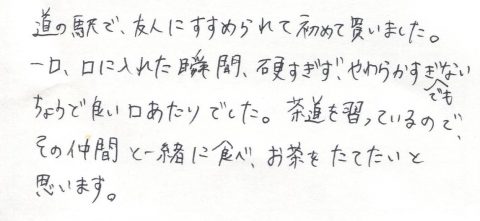 道の駅で、友人にすすめられて初めて買いました。
一口、口に入れた瞬間、硬すぎず、やわらかすぎでもない
ちょうど良い口あたりでした。茶道を習っているので、
その仲間と一緒に食べ、お茶をたてたいと
思います。